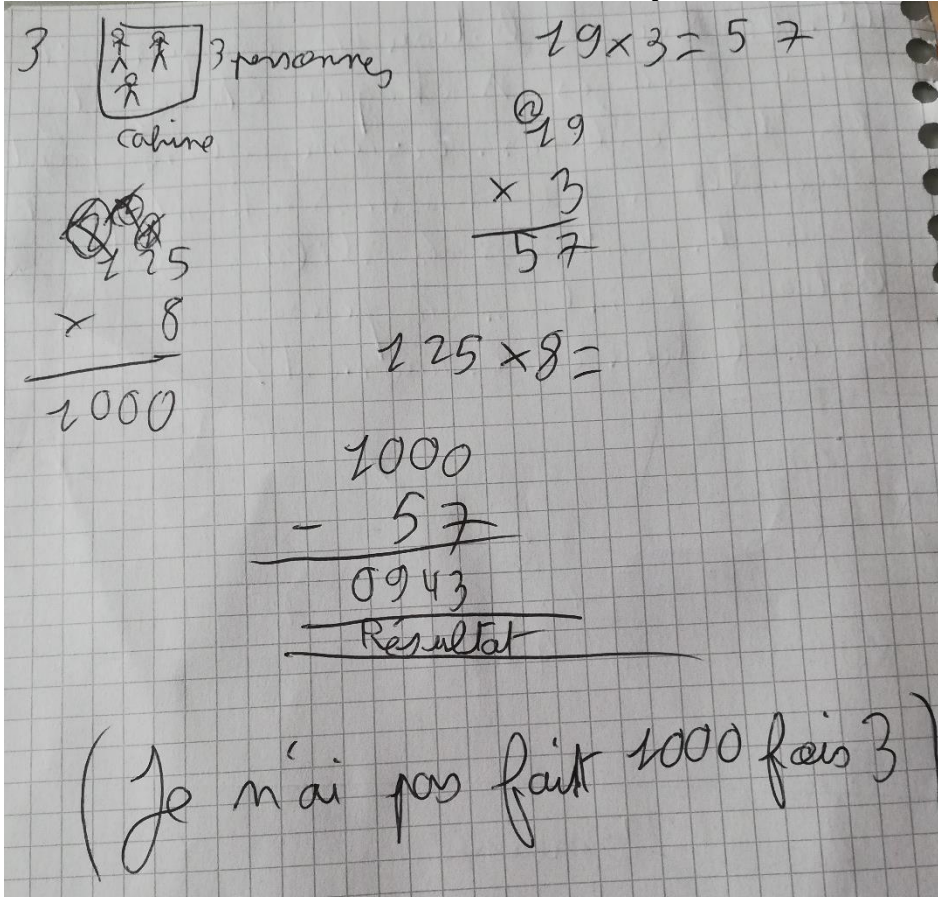 3 3 personnes
cabine
19 x 3 = 57
2
19
x 3
57
125
x 8
1000
125 x 8 =
1000
- 57
0943
Résultat
(Je n'ai pas fait 1000 fois 3)